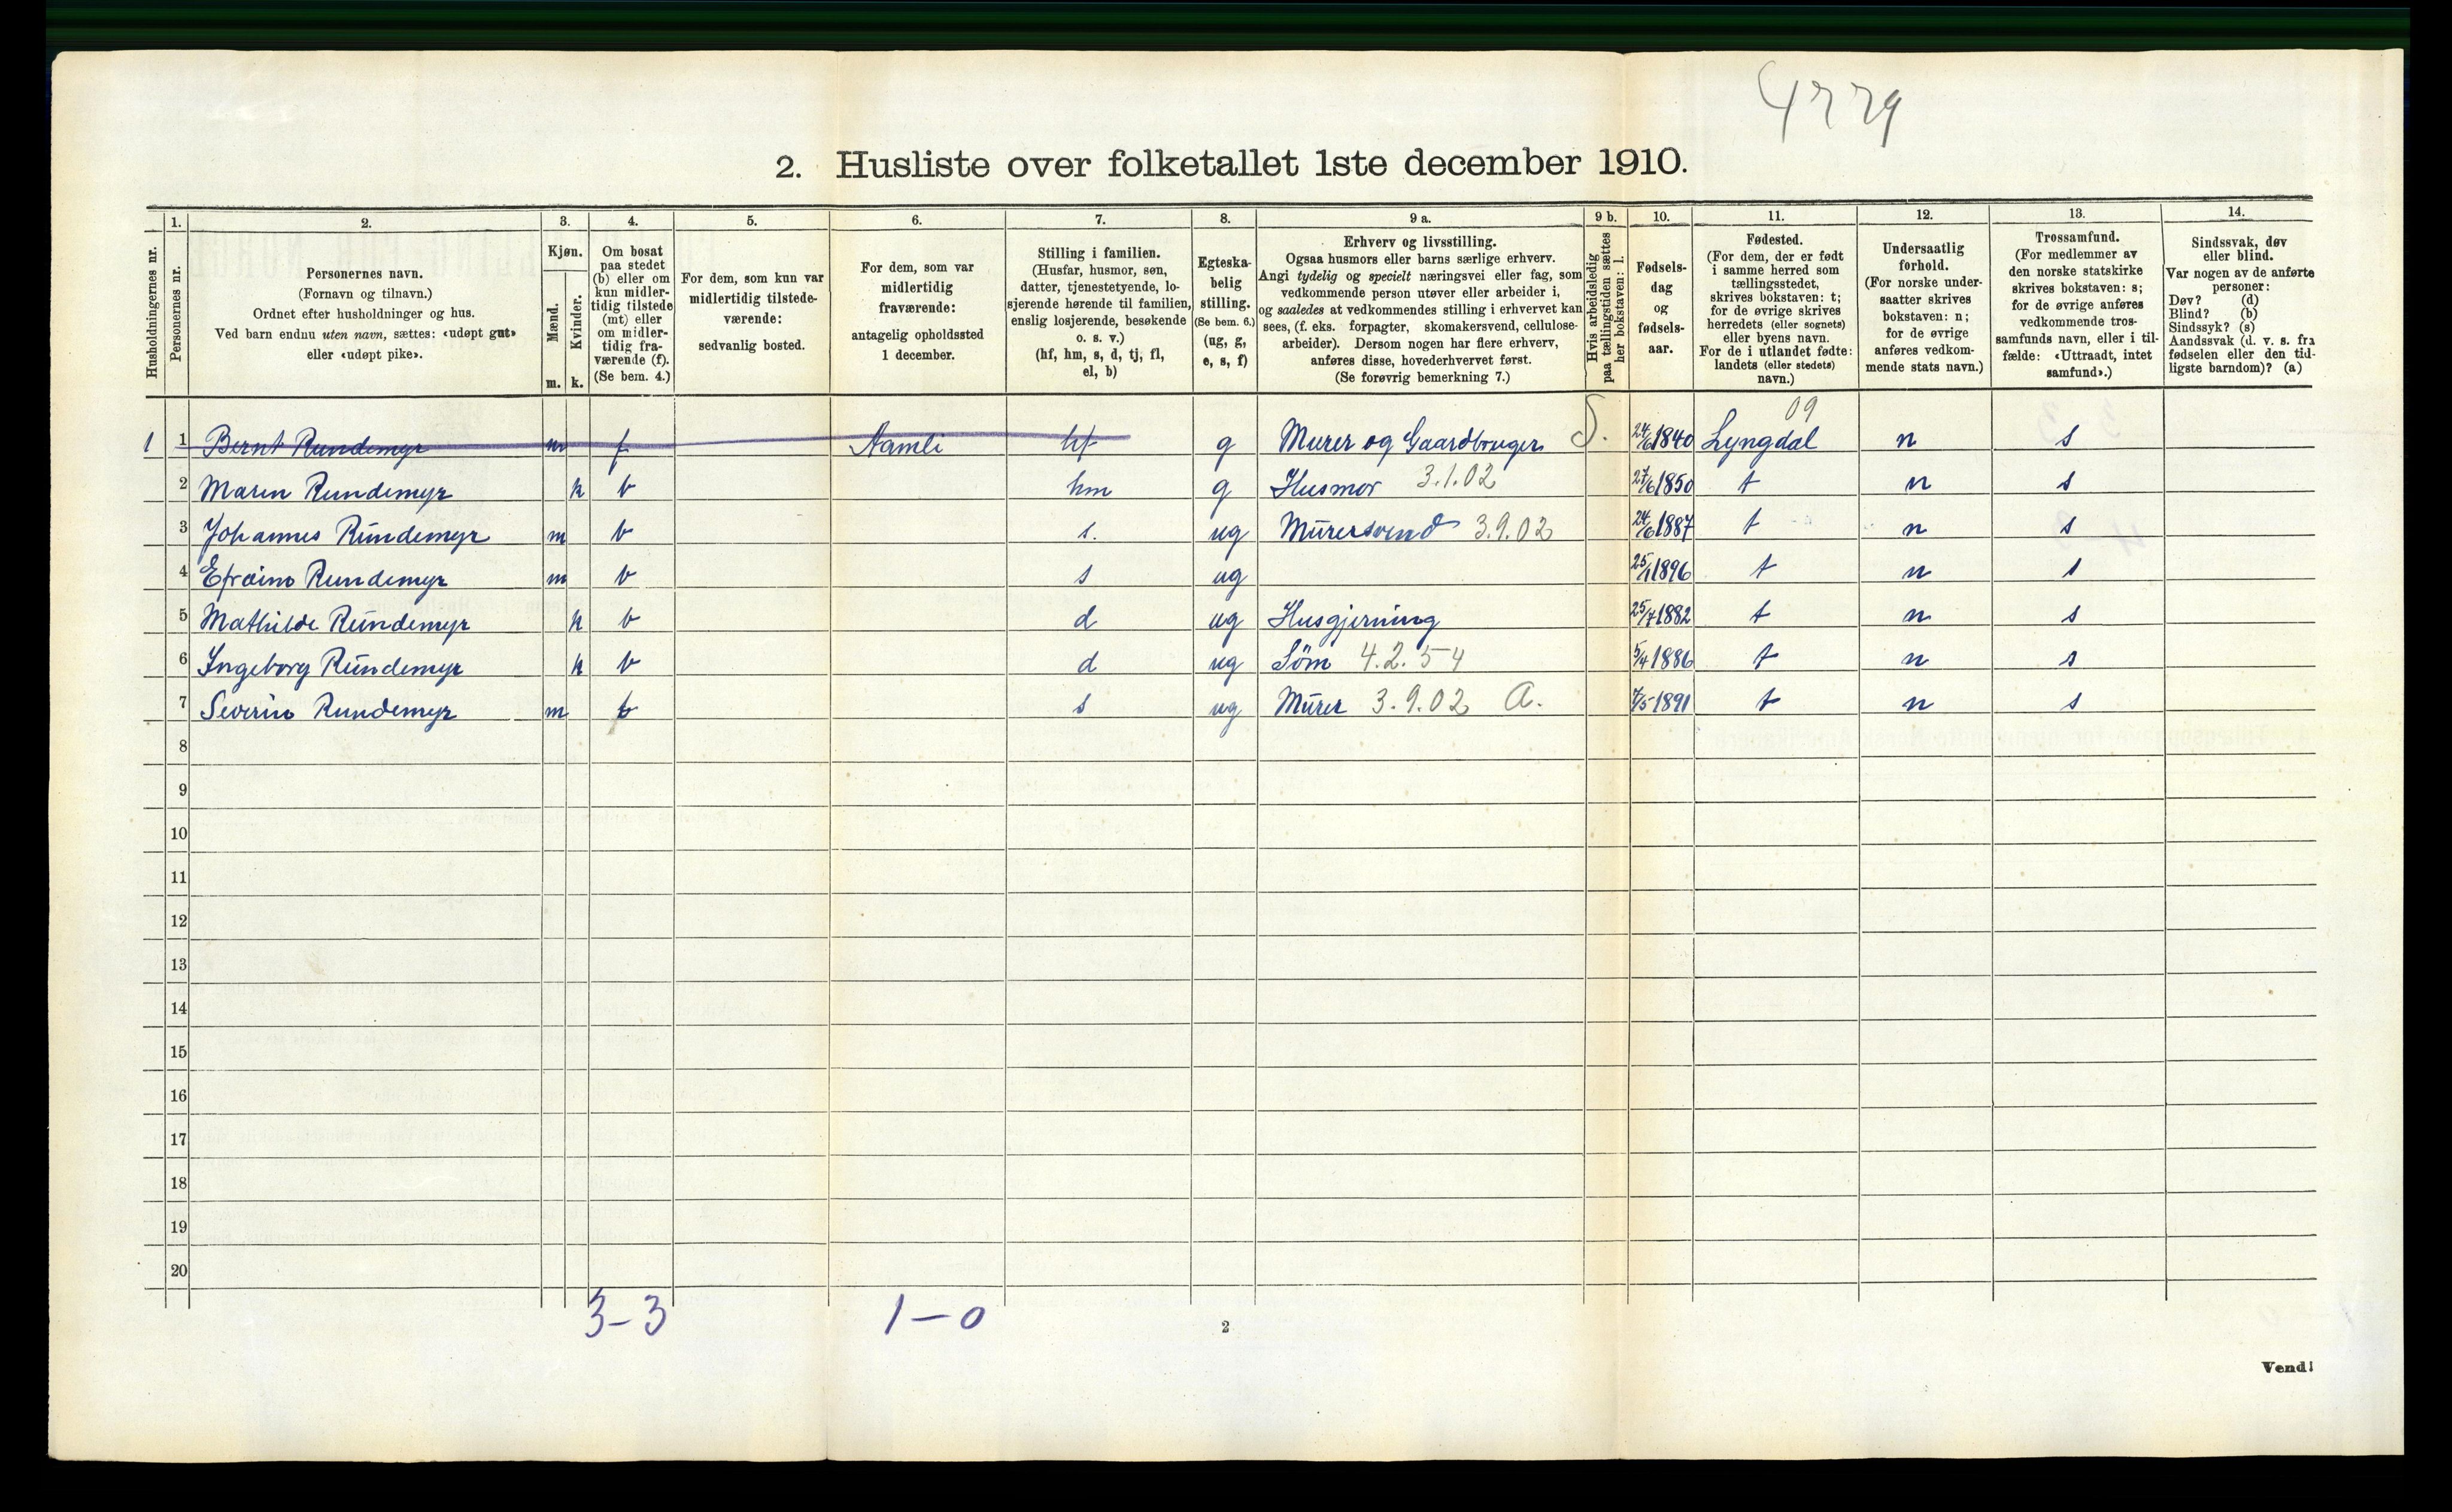 4779
2. Husliste over folketallet 1ste december 1910.
Husholdningernes nr.
1. Personernes nr.
2. Personernes navn. (Fornavn og tilnavn.) Ordnet efter husholdninger og hus. Ved barn endnu uten navn, sættes: «udøpt gut» eller «udøpt pike».
3. Kjøn. Mænd. m. Kvinder. k.
4. Om bosat paa stedet (b) eller om kun midlertidig tilstede (mt) eller om midlertidig fraværende (f). (Se bem. 4.)
5. For dem, som kun var midlertidig tilstedeværende: sedvanlig bosted.
6. For dem, som var midlertidig fraværende: antagelig opholdssted 1 december.
7. Stilling i familien. (Husfar, husmor, søn, datter, tjenestetyende, losjerende hørende til familien, enslig losjerende, besøkende o. s. v.) (hf, hm, s, d, tj, fl, el, b)
8. Egteskabelig stilling. (Se bem. 6.) (ug, g, e, s, f)
9 a. Erhverv og livsstilling. Ogsaa husmors eller barns særlige erhverv. Angi tydelig og specielt næringsvei eller fag, som vedkommende person utøver eller arbeider i, og saaledes at vedkommendes stilling i erhvervet kan sees, (f. eks. forpagter, skomakersvend, cellulosearbeider). Dersom nogen har flere erhverv, anføres disse, hovederhvervet først. (Se forøvrig bemerkning 7.)
9 b. Hvis arbeidsledig paa tællingstiden sættes her bokstaven: l.
10. Fødselsdag og fødselsaar.
11. Fødested. (For dem, der er født i samme herred som tællingsstedet, skrives bokstaven: t; for de øvrige skrives herredets (eller sognets) eller byens navn. For de i utlandet fødte: landets (eller stedets) navn.)
12. Undersaatlig forhold. (For norske undersaatter skrives bokstaven: n; for de øvrige anføres vedkommende stats navn.)
13. Trossamfund. (For medlemmer av den norske statskirke skrives bokstaven: s; for de øvrige anføres vedkommende trossamfunds navn, eller i tilfælde: «Uttraadt, intet samfund».)
14. Sindssvak, døv eller blind. Var nogen av de anførte personer: Døv? (d) Blind? (b) Sindssyk? (s) Aandssvak (d. v. s. fra fødselen eller den tidligste barndom)? (a)
09
1 1 Bernt Rundemyr m f Aamli hf g Murer og Gaardbruger S. 24/6 1840 Lyngdal n s
2 Maren Rundemyr k b hm g Husmor 3.1.02 27/6 1850 t n s
3 Johannes Rundemyr m b s. ug Murersvend 3.9.02 24/6 1887 t n s
4 Efraim Rundemyr m b s ug 25/1 1896 t n s
5 Mathilde Rundemyr k b d ug Husgjerning 25/7 1882 t n s
6 Ingeborg Rundemyr k b d ug Søm 4.2.54 5/4 1886 t n s
7 Severin Rundemyr m b s ug Murer 3.9.02 A. 7/5 1891 t n s
8
9
10
11
12
13
14
15
16
17
18
19
20
3-3 1-0
2
Vend!